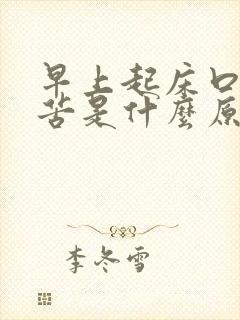 早上起床口
苦是什麼原
李冬雪